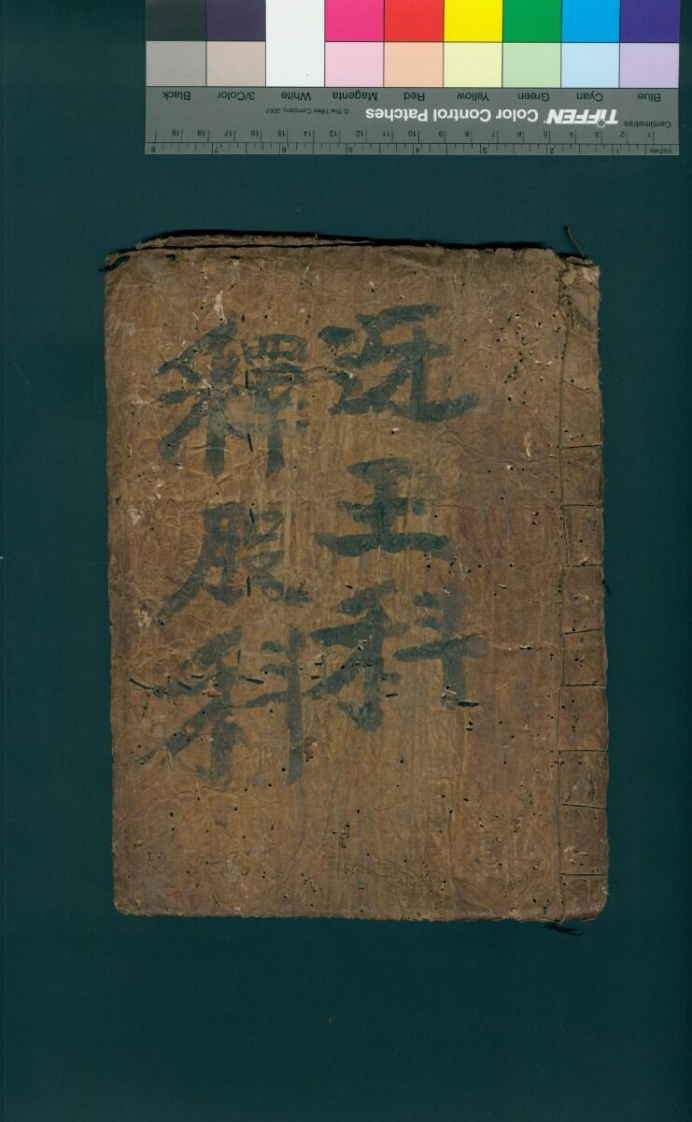 Inches 1 2 3 4 5 6 7 8
Centimetres 1 2 3 4 5 6 7 8 9 10 11 12 13 14 15 16 17 18 19
TIFFEN Color Control Patches © The Tiffen Company, 2007
Blue Cyan Green Yellow Red Magenta White 3/Color Black
迓王科
釋服科